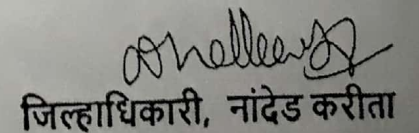 जिल्हाधिकारी, नांदेड करीता